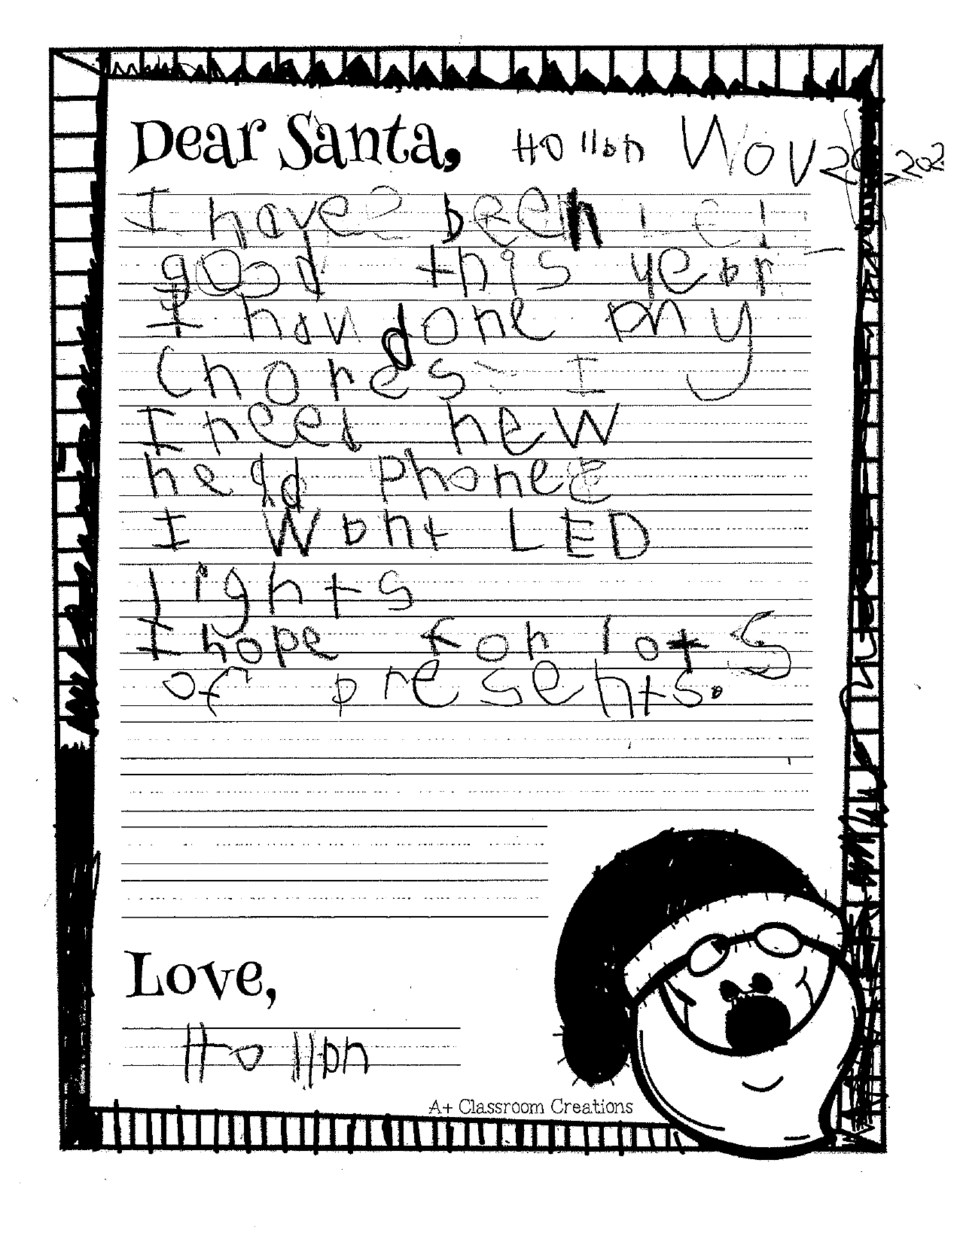 Dear Santa, Hollan Nov
I have been
good this year
I hav done my
Chores I
I need new
head phones
I Want LED
lights
I hope for lots
of presents.
Love,
Hollan
A+ Classroom Creations